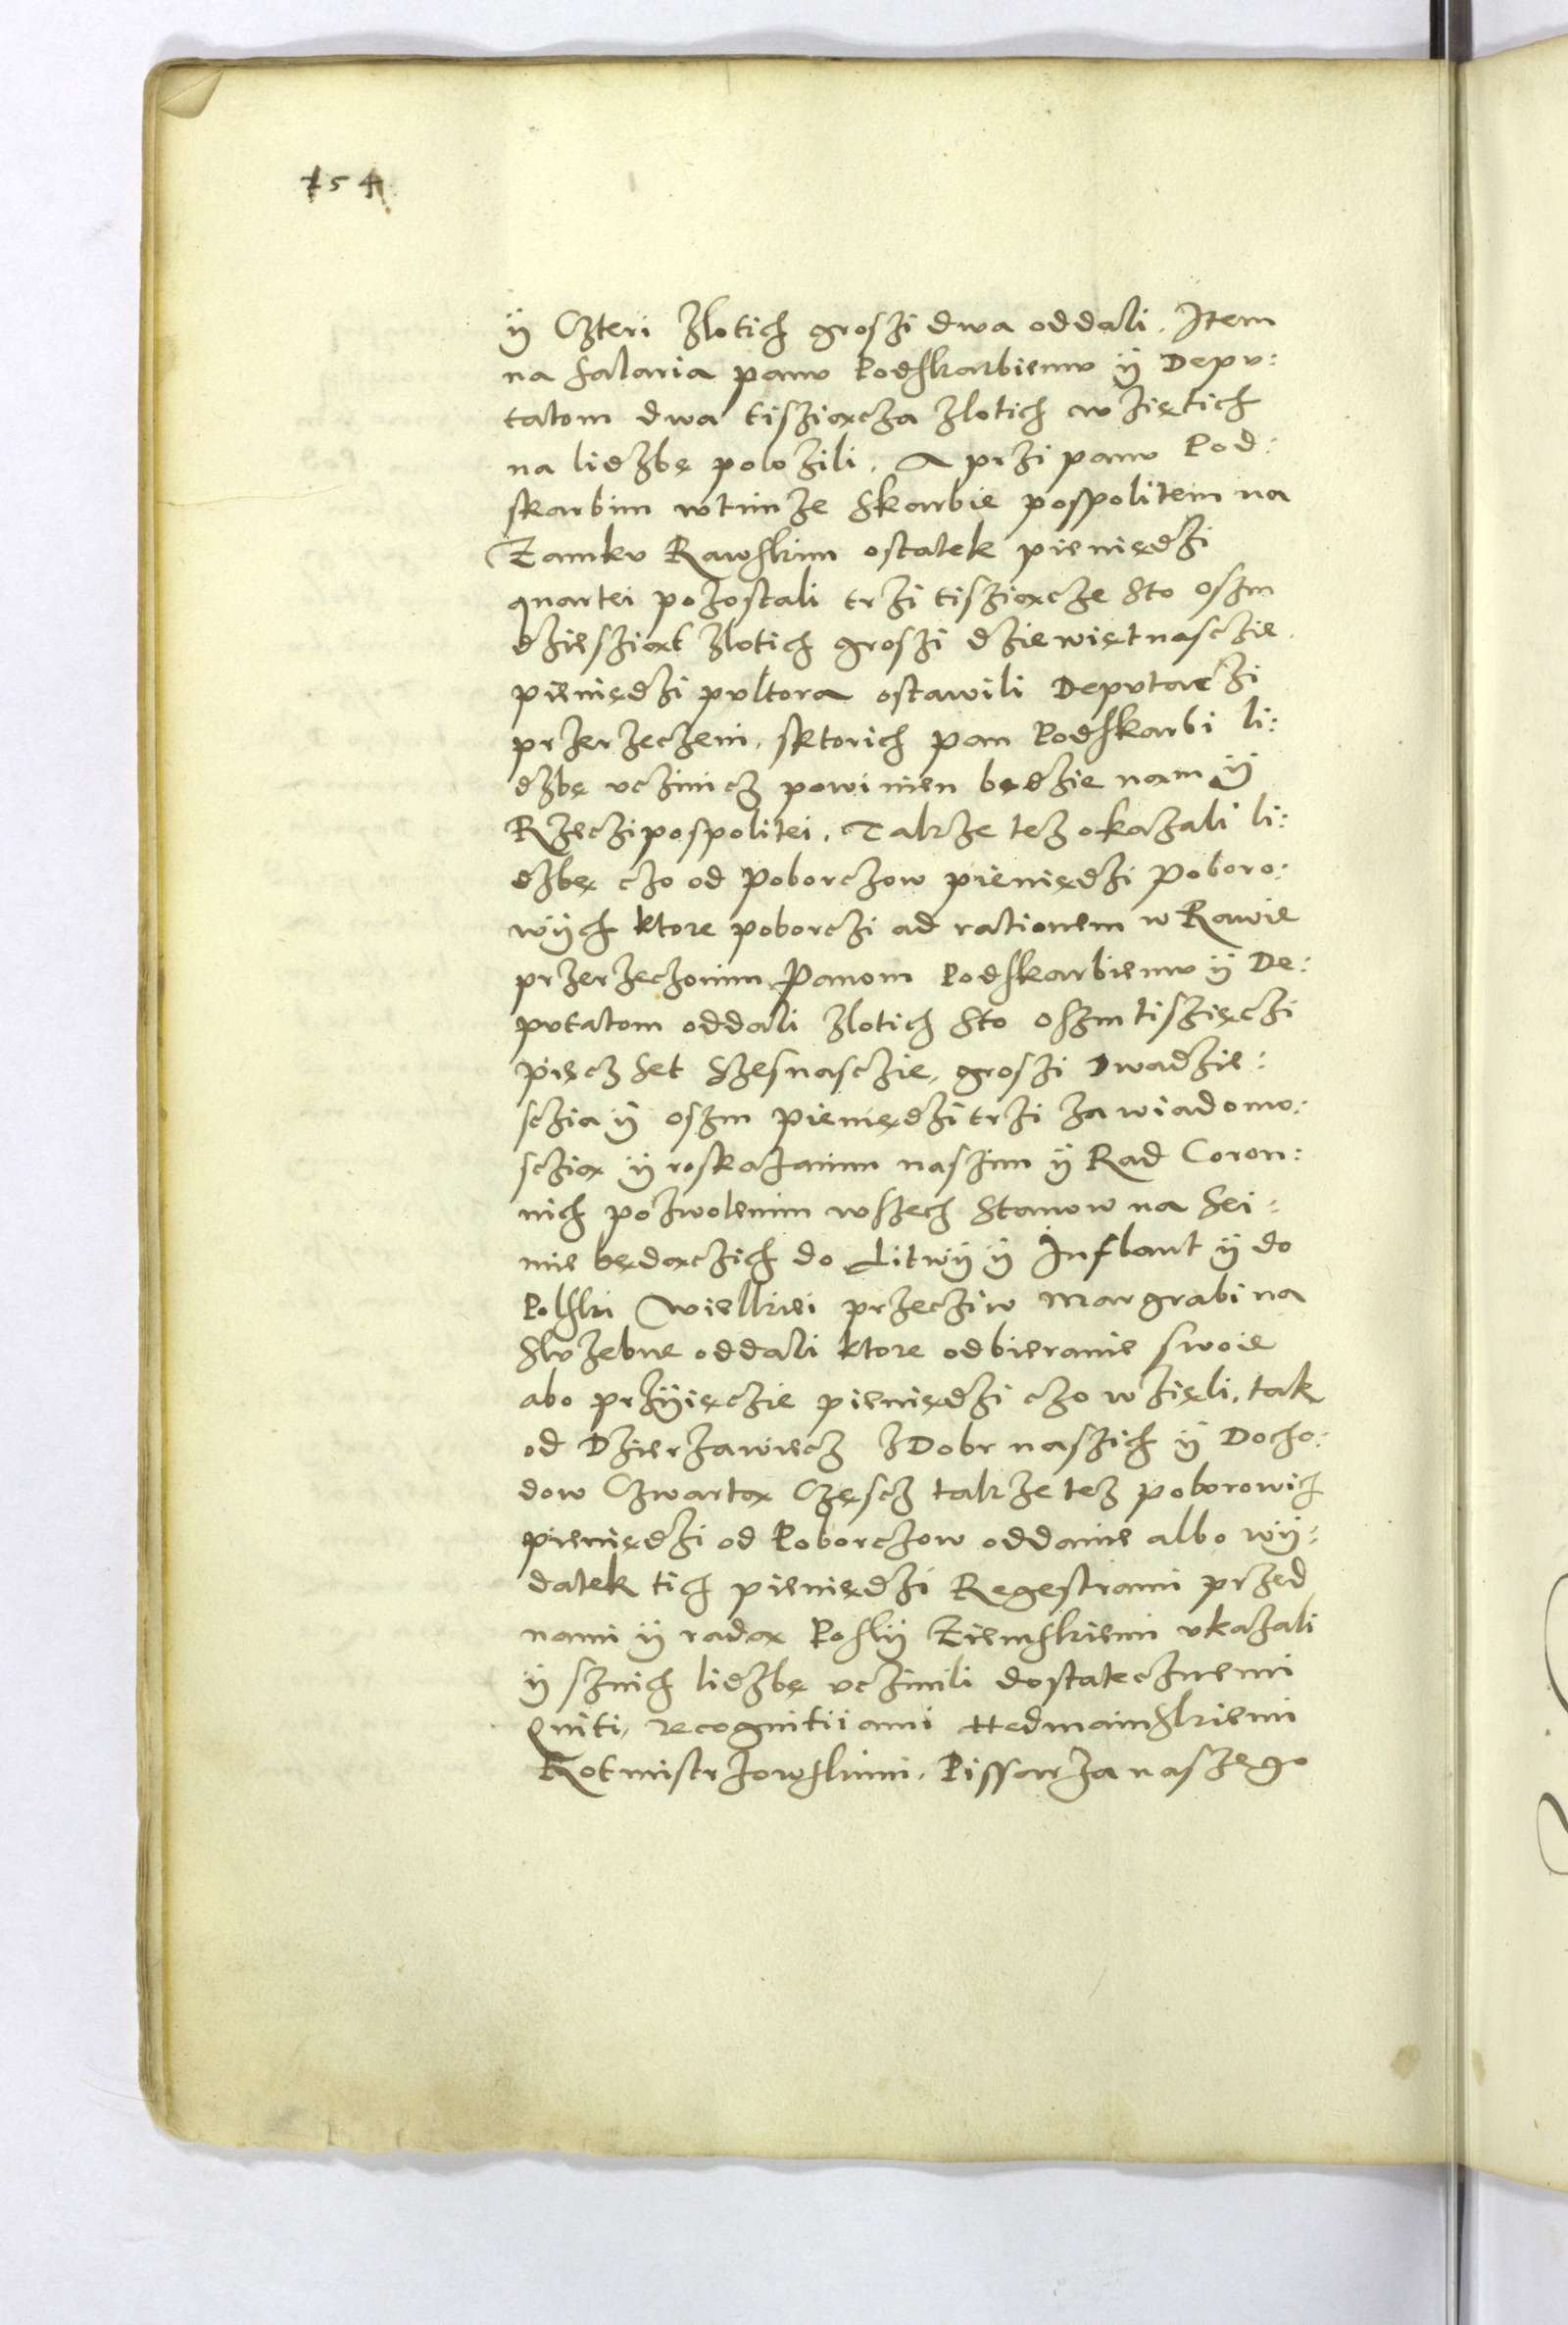 154
ÿ Czteri zlotich groszi dwa oddali. Item
na salaria panu Podskarbiemu ÿ Depu:
tatom dwa tisziącza zlotich wziętich
na lidzbę polozili. A przi panu Pod:
skarbim wtimze Skarbie pospolitem na
Zamku Rawskim ostatek pieniędzi
quartei pozostali trzi tisziącze Sto oszm
dzieszią​t zlotich groszi dziewiętnasczie
pieniędzi pultora ostawili Deputaczi
przerzeczeni, sktorich pan Podskarbi li:
dzbę uczinicz powinien będzie nam ÿ
Rzeczipospolitei. Takze tez okazali li:
dzbę czo od Poborczow pieniędzi Poboro:
wÿch ktore poborczi ad rationem w Rawie
przerzeczonim Panom Podskarbiemu ÿ De:
putatom oddali zlotich Sto oszm tiszięczi
pięcz set Szesnasczie, groszi Dwadzie:
sczia ÿ oszm pieniędzi trzi za wiadomo:
sczią ÿ roskazanim naszim ÿ Rad Coron:
nich pozwolenim wszech Stanow na Sei:
mie będączich do Litwÿ ÿ Inflant ÿ do
Polski Wielkiei przecziw Margrabi na
Sluzebne oddali ktore odbieranie swoie
abo przÿięczie pieniędzi czo wzięli, tak
od Dzierzawiecz z Dobr naszich ÿ Docho:
dow Czwartą Częscz takze tez poborowich
pieniędzi od Poborczow oddanie albo wÿ:
datek tich pieniędzi Regestrami przed
nami ÿ radą Poslÿ Ziemskiemi ukazali
ÿ sznich lidzbę uczinili dostatecznemi
Quiti, recognitiiami Hedmainskiemi
Rotmistrzowskimi. Pissarza naszego